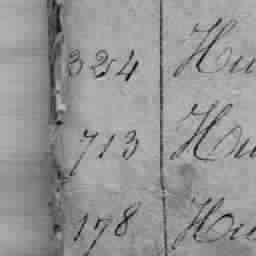 324 Hu
713 Hu
178 Hu